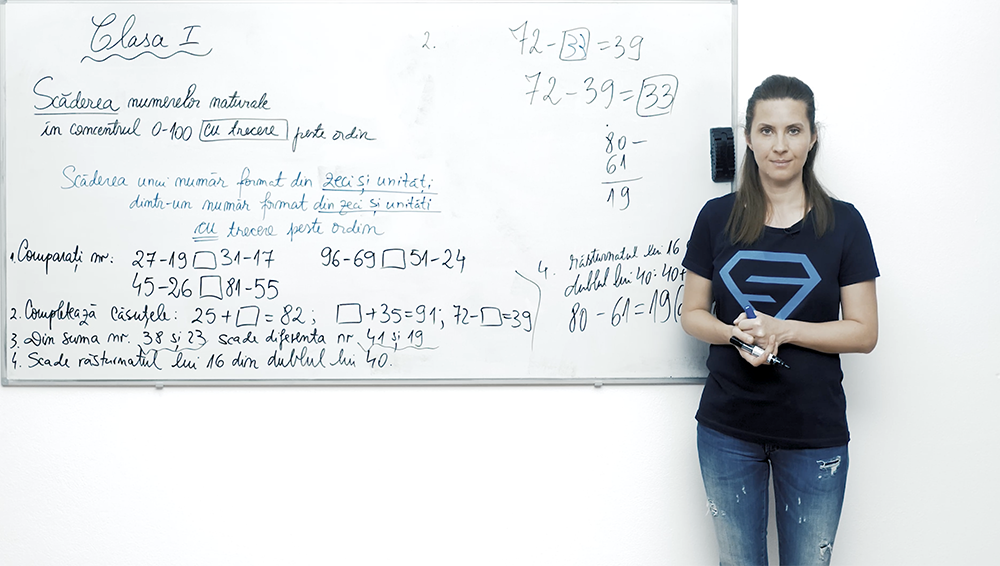 Clasa I
Scăderea numerelor naturale
în concentrul 0-100 cu trecere peste ordin
Scăderea unui număr format din zeci și unități
dintr-un număr format din zeci și unități
cu trecere peste ordin
1. Comparați nr: 27-19 □ 31-17 96-69 □ 51-24
45-26 □ 81-55
2. Completează căsuțele: 25+□=82; □+35=91; 72-□=39
3. Din suma nr. 38 și 23 scade diferența nr 41 și 19
4. Scade răsturnatul lui 16 din dublul lui 40.
2. 72-33=39
72-39=33
80-
61
19
4. răsturnatul lui 16
dublul lui 40: 40+
80-61=19